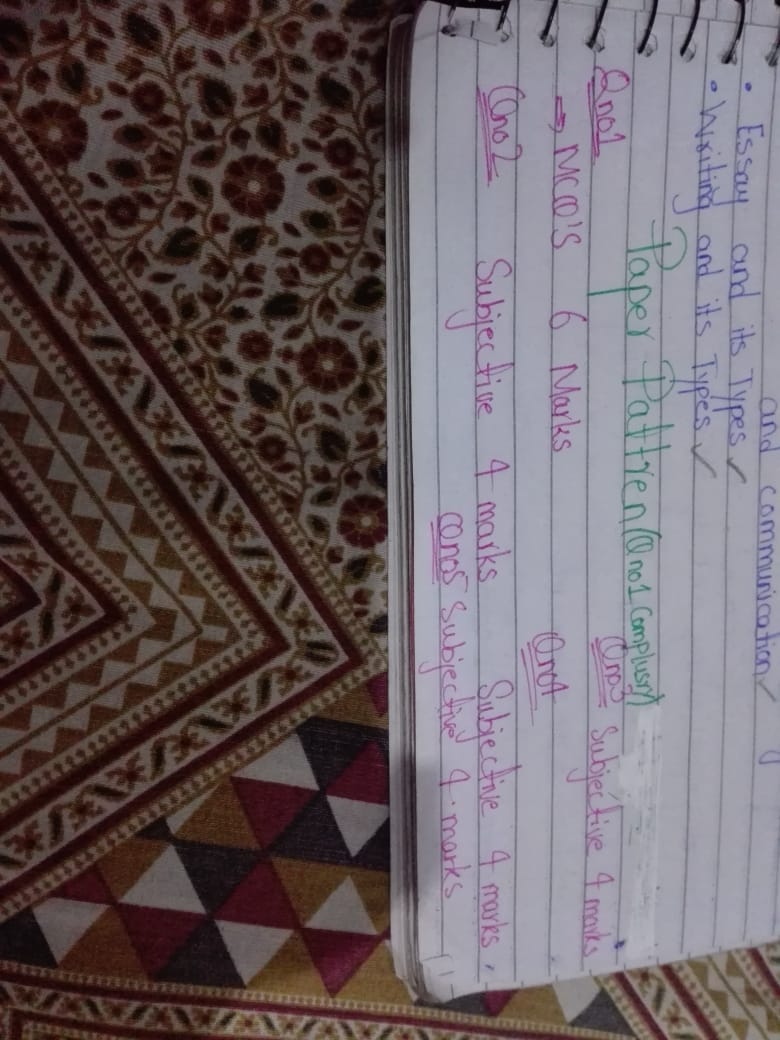 and communication ✓
• Essay and its Types ✓
• Writing and its Types ✓
Paper Pattren (Qno1 Complusry)
Qno1
Qno3 Subjective 4 marks
⇒ MCQ'S 6 Marks
Qno4
Qno2 Subjective 4 marks
Subjective 4 marks.
Qno5 Subjective 4 marks